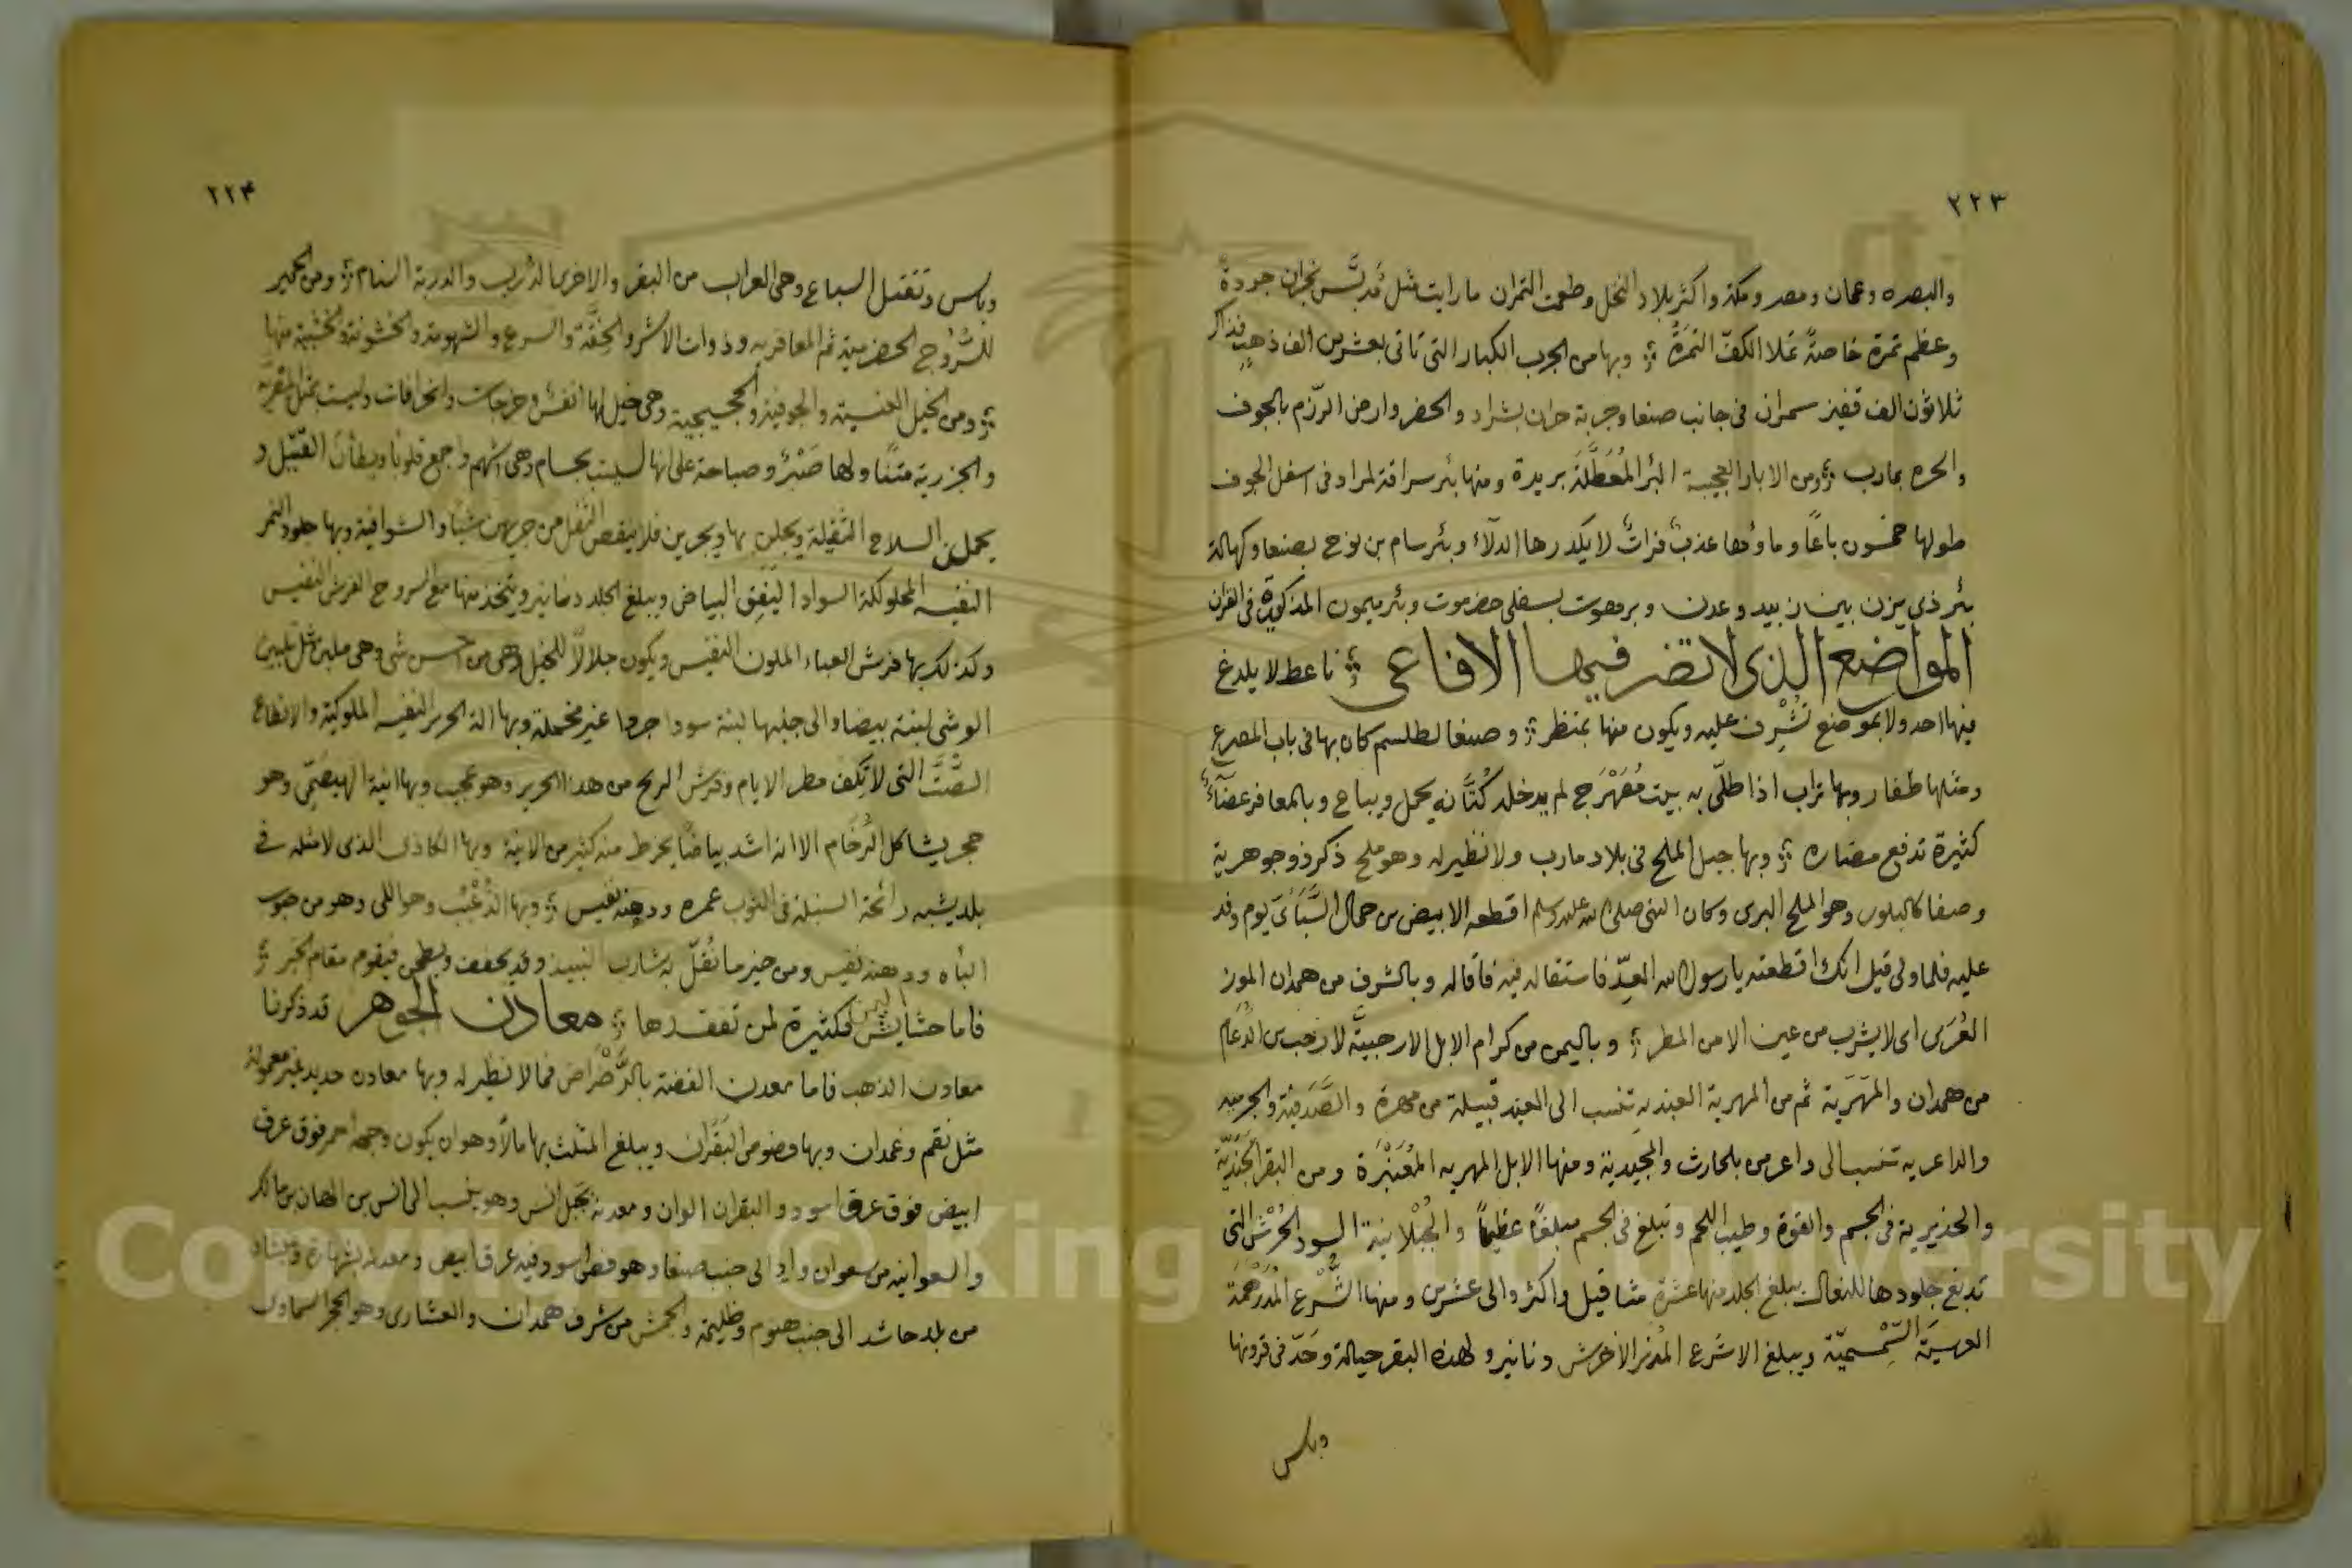 ٢٢٣
والبصره وعمان ومصر ومكة واكثر بلاد النخل وطعمت التمران ما رايت مثل مُدبَّس نجران جودةً
وعظم تمرة خاصةً تملا الكفّ التمرَةُ وبها من الجرب الكبار التى تاتى بعشرين الف ذهب فذاكر
ثلاثون الف قفيز سمران فى جانب صنعا وجربة حران بشراد والحضر وارض الرزم بالجوف
والحره بمارب ومن الابار العجيبة البئر المُعَطَّلَة بريدة ومنها بئر سراقة لمراد فى اسفل الجوف
طولها خمسون باعًا وماوُها عذبٌ فراتٌ لا يكدرها الدلآء وبئر سام بن نوح بصنعا وكهالة
بئر ذى يزن بين زبيد وعدن وبرهوت بسفلى حضرموت وبئر ميمون المذكورة فى القران
المواضع الذى لا تضر فيها الافاعى ناعط لا يلدغ
فيها احد ولا بموضع تُشْرِف عليه ويكون منها بمنظر وصنعا لطلسم كان بها فى باب المصرع
ومثلها ظفار وبها تراب اذا طلّى به بيت مُصَهْرَج لم يدخله كُتَّانه يحمل ويباع وبالمعافر عضآءٌ
كثيرة تدفع مضاره وبها جبل الملح فى بلاد مارب ولا نظير له وهو ملح ذكر ذو جوهرية
وصفا كالبلور وهو الملح البرى وكان النبى صلى الله عليه وسلم اقطعه الابيض بن حمال السَّبَائى يوم وفد
عليه فلما ولى قيل انك اقطعته يا رسول الله العِدّ فاستقاله فيه فاقاله وبالشرف من همدان الموز
العُرَمى اى لا يشرب من عين الا من المطر وباليمن من كرام الابل الارحبيَّة لارحب بن الدُعَام
من همدان والمَهَرية ثم من المهرية العيديه تنسب الى العيد قبيلة من مهرة والصَّدَفية والجرميه
والداعريه تنسب الى داعر من بلحارث والمجَيدية ومنها الابل المهريه المُعَنْبَرة ومن البقر الجَنَديَّة
والخديرية فى الجسم والقوة وطيب اللحم وتبلغ فى الجسم مبلغًا عظيمًا والجُبْلانية السود الحُرْش التى
تدبغ جلودها للنعال يبلغ الجلد منها عشرة مثاقيل واكثر والى عشرين ومنها الشُّرْع المُدَرْهَمَة
العرسية السَّمْسميّة ويبلغ الاشرع المُدنر الاخرش دنانير ولهذه البقر حيالة وحَدّ فى قرونها
وباس
٢٢٤
وباس وتقتل السباع وهى العراب من البقر والاخرى الدّرب والدربة السنام ومن الحمير
للسُّرُوج الحضرمية ثم المعافريه وذوات الاشر والخِفَّة والسرع والشهومة والخشونة والخشبية منها
ومن الخيل العنسية والجوفية والحجيجية وهى خيل لها انفس وخرجات وانحرافات وليست بمثل المقربة
والجزرية متنًا ولها صَبْرٌ وصباحة على انها ليست بجسام وهى اشهم واجمع قلوبًا ويطأن القتيل و
يحملن السلاح الثقيلة ويجلن بها ويجرين فلا ينقص الثقل من جريهن شيئًا والشوافية وبها جلود النمر
النفيسه المحلولكة السواد اليَقِق البياض ويبلغ الجلد دنانير ويتخذ منها مع السروج الفرش النفيس
وكذلك بها فرش العباء الملون النفيس ويكون جلالًا للخيل وهى من احسن شى وهى ملبن مثل تلبين
الوشى لبنة بيضا والى جنبها لبنة سودا جردا غير مخملة وبها الة الحرير النفيسه الملوكية والانطاع
التى لا تكف مطر الايام وفرش الريح من هذا الحرير وهو عجيب وبها انية الهيصَمى وهو
حجر يشاكل الرُخَام الا انه اشد بياضًا يخرط منه كثير من الانية وبها الكاذى الذى لا مثله فى
بلد يشبه رائحة السنبلة فى الثوب عمره ودهنه نفيس وبها الذُعْبُب وهو اللى وهو من حبوب
الباه ودهنه نفيس ومن خير ما نُقُل به شارب النبيذ وقد يجفف ويطحن فيقوم مقام الخبز
فاما حشايش اليمن فكثيرة لمن تفقدها معادن الجوهر قد ذكرنا
معادن الذهب فاما معدن الفضة بالرَّضْراض فما لا نظير له وبها معادن حديد غير معمولة
مثل نقم وغمدان وبها فصوص البَقَران ويبلغ المثلث بها مالًا وهو ان يكون وجهه احمر فوق عرق
ابيض فوق عرق اسود والبقران الوان ومعدنه بجَبل انس وهو ينسب الى انس بن الهان بن مالك
والسعوانيه من سعوان وادٍ الى جنب صنعا وهو فص اسود فيه عرق ابيض ومعدنه بشهارة وعيشان
من بلد حاشد الى جنب هنوم وظليمة والجمش من شرف همدان والعشارى وهو الحجر السماوى